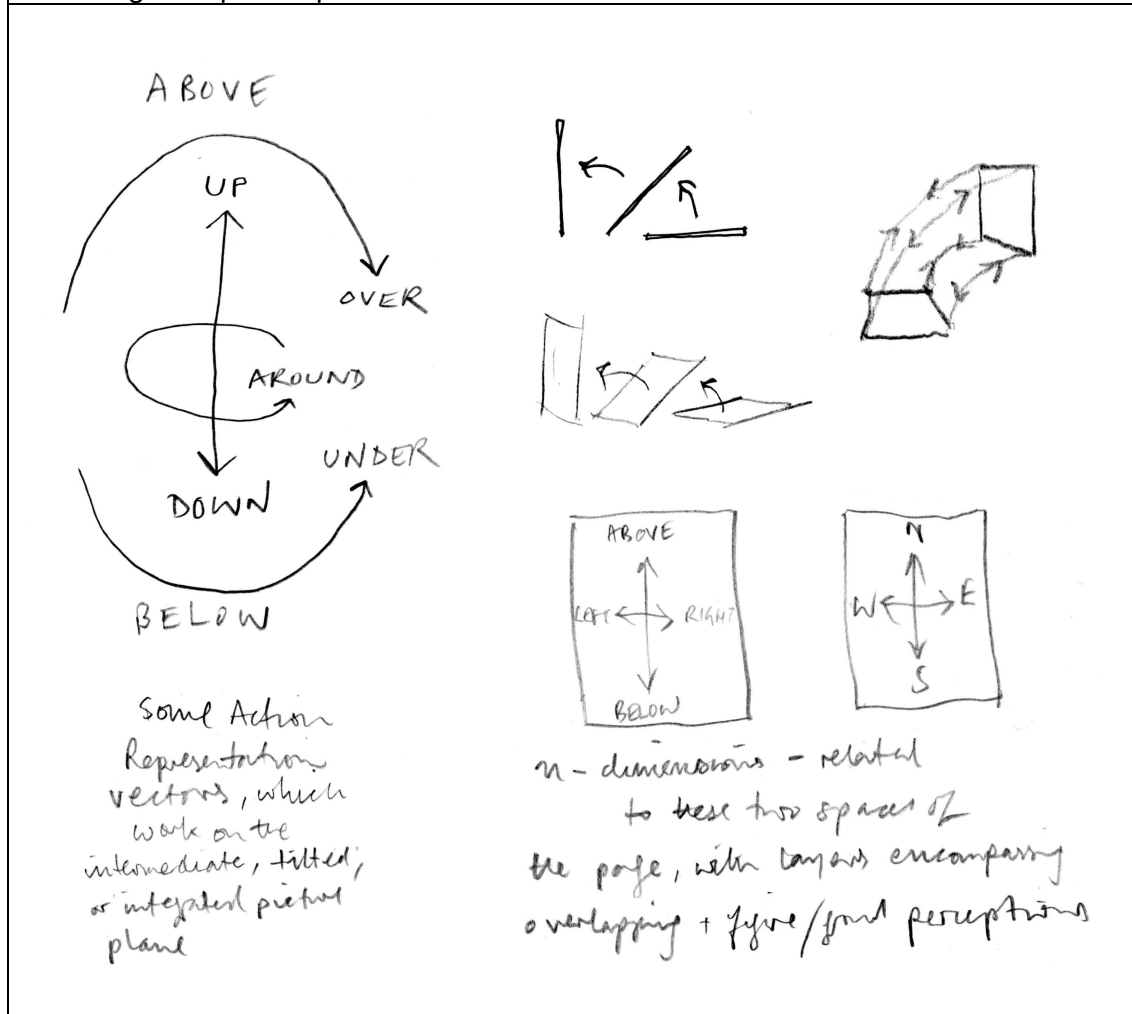 ABOVE
UP
OVER
AROUND
UNDER
DOWN
BELOW
Some Action
Representation
vectors, which
work on the
intermediate, tilted,
or integrated picture
plane
ABOVE
LEFT RIGHT
BELOW
N
W E
S
n-dimensions - related
to these two spaces of
the page, with layers encompassing
overlapping + figure/ground perceptions